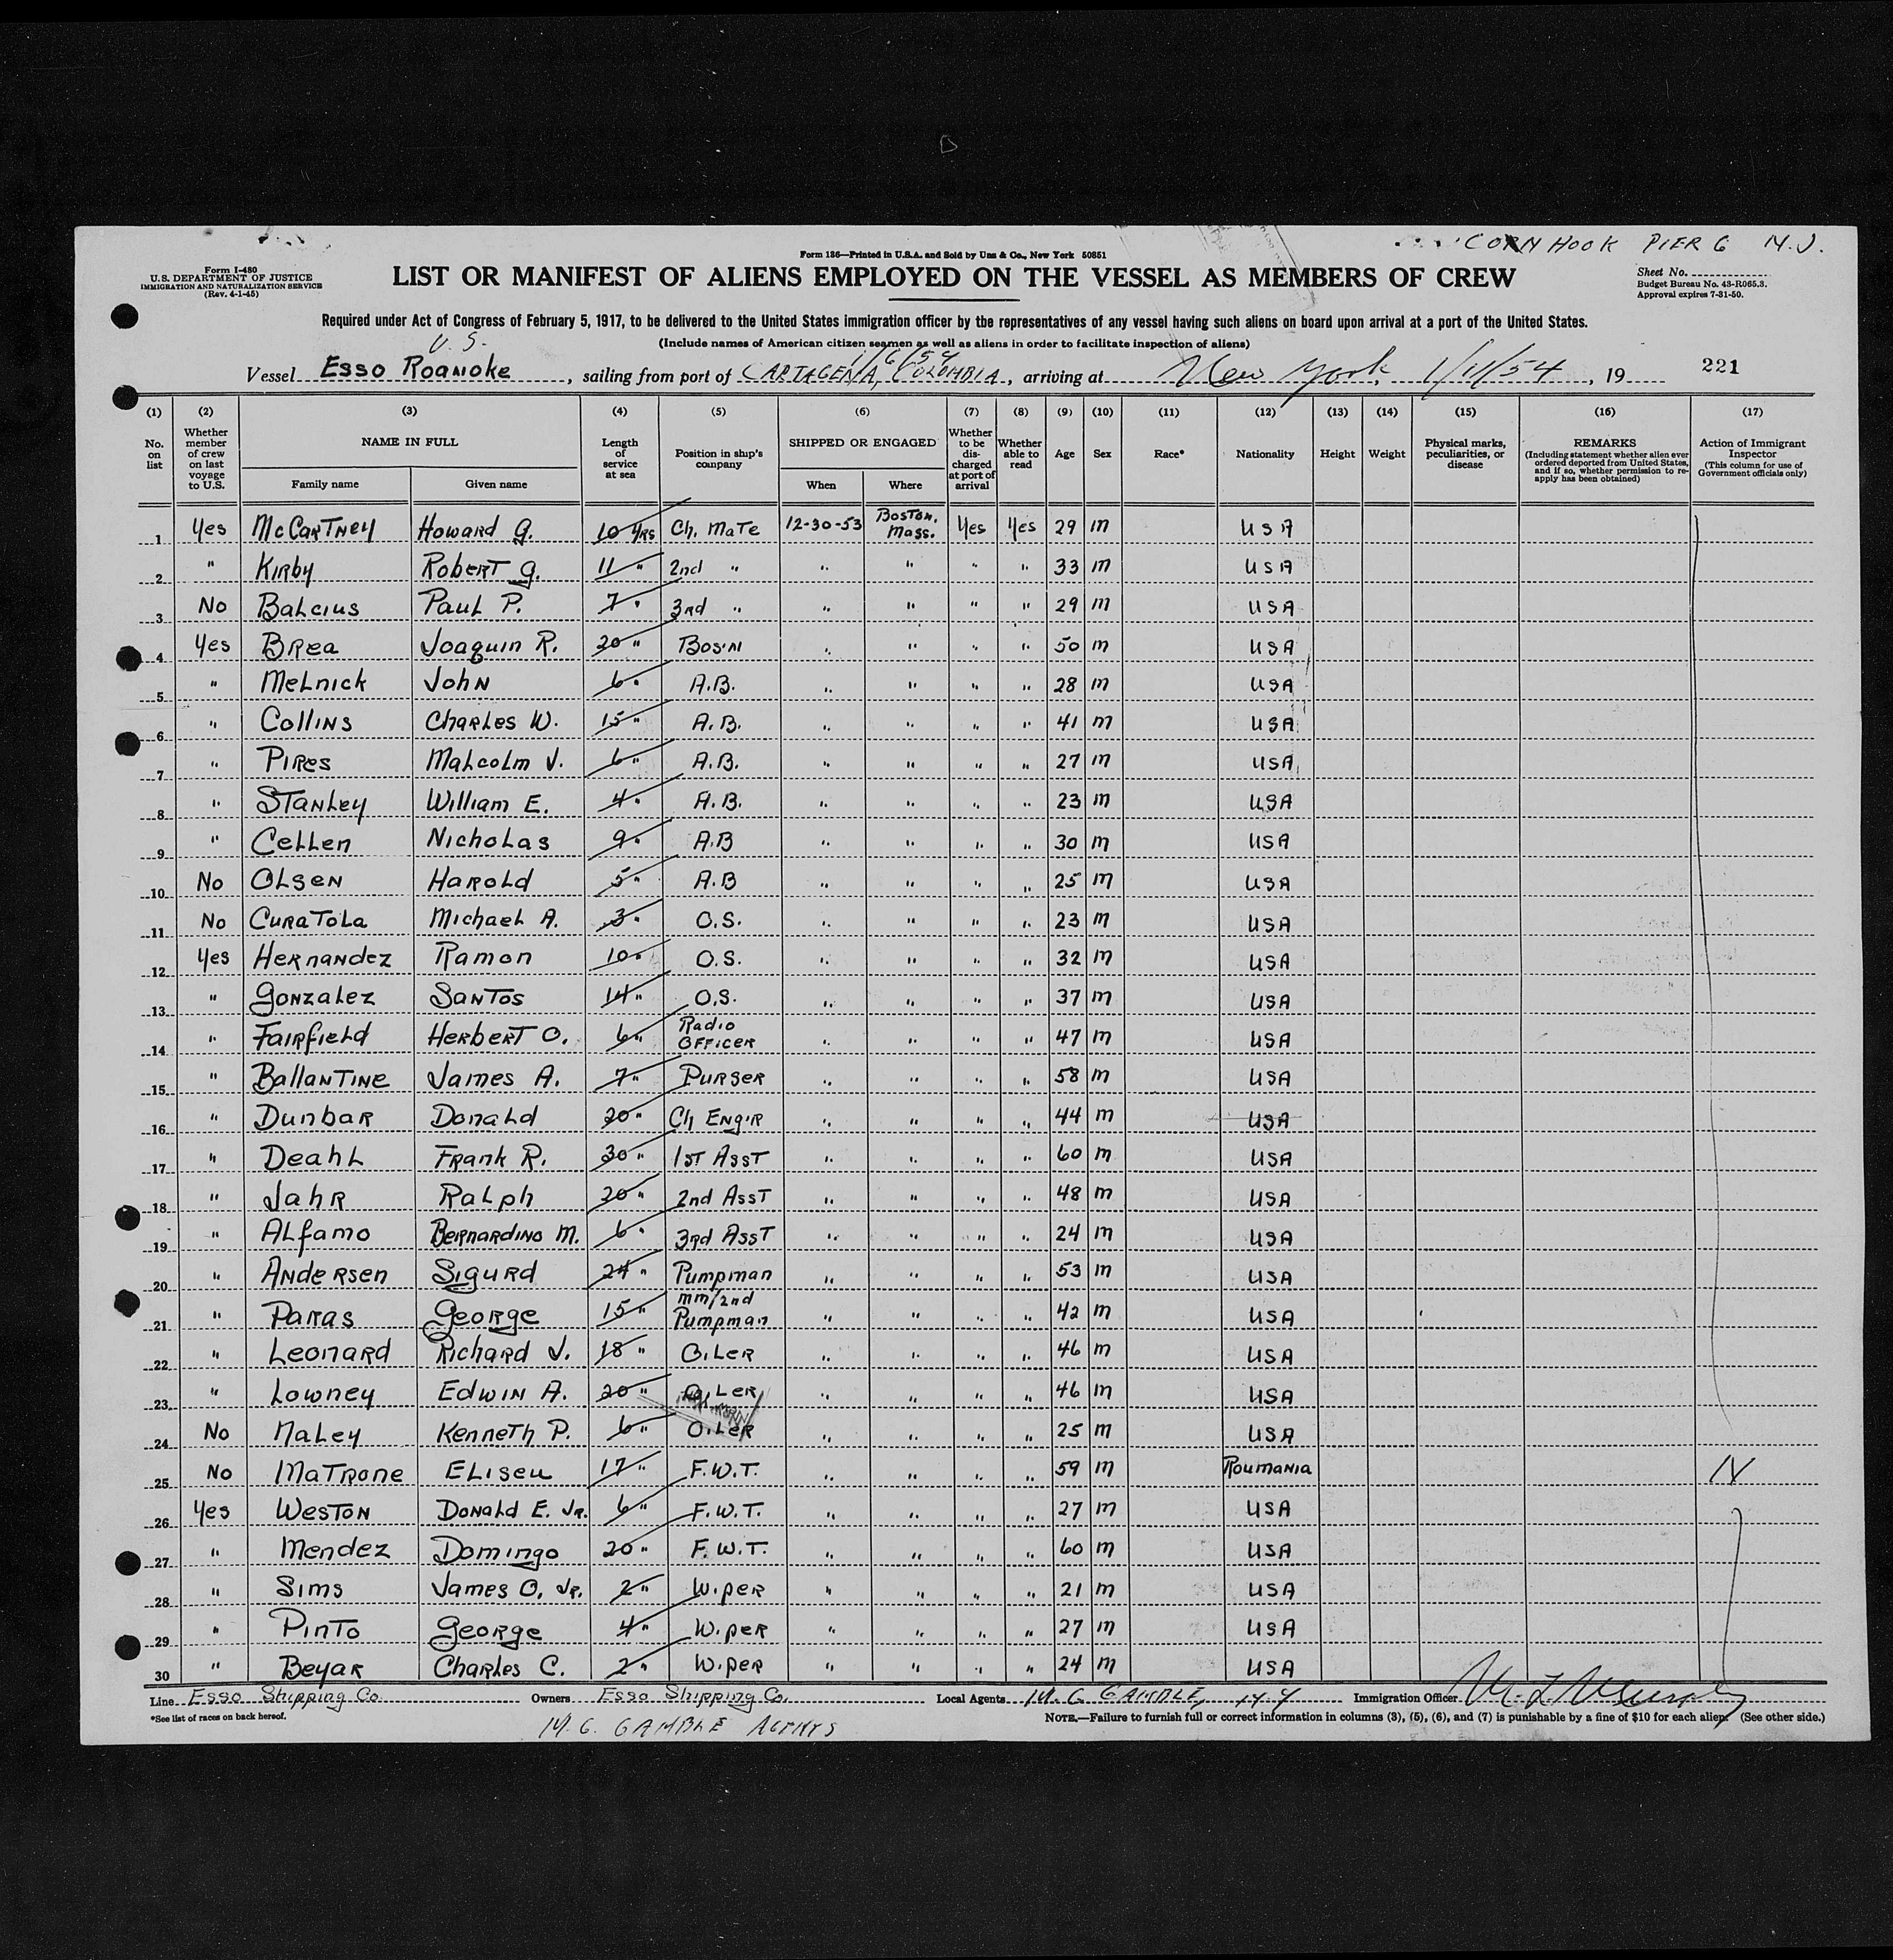 CORN HOOK PIER 6 N.J.
Form I-480
U.S. DEPARTMENT OF JUSTICE
IMMIGRATION AND NATURALIZATION SERVICE
(Rev. 4-1-45)
Form 136—Printed in U.S.A. and Sold by Unz & Co., New York 50851
LIST OR MANIFEST OF ALIENS EMPLOYED ON THE VESSEL AS MEMBERS OF CREW
Sheet No.
Budget Bureau No. 43-R065.3.
Approval expires 7-31-50.
Required under Act of Congress of February 5, 1917, to be delivered to the United States immigration officer by the representatives of any vessel having such aliens on board upon arrival at a port of the United States.
(Include names of American citizen seamen as well as aliens in order to facilitate inspection of aliens)
U.S. 1/6/54
Vessel Esso Roanoke, sailing from port of CARTAGENA, COLOMBIA, arriving at New York, 1/11/54, 19 221
(1) (2) (3) (4) (5) (6) (7) (8) (9) (10) (11) (12) (13) (14) (15) (16) (17)
No. on list
Whether member of crew on last voyage to U.S.
NAME IN FULL
Family name
Given name
Length of service at sea
Position in ship's company
SHIPPED OR ENGAGED
When
Where
Whether to be discharged at port of arrival
Whether able to read
Age
Sex
Race*
Nationality
Height
Weight
Physical marks, peculiarities, or disease
REMARKS
(Including statement whether alien ever ordered deported from United States, and if so, whether permission to reapply has been obtained)
Action of Immigrant Inspector
(This column for use of Government officials only)
1 Yes McCartney Howard G. 10 yrs Ch. Mate 12-30-53 Boston, Mass. Yes Yes 29 m USA
2 " Kirby Robert G. 11 " 2nd " " " " " 33 m USA
3 No Balcius Paul P. 7 " 3rd " " " " " 29 m USA
4 Yes Brea Joaquin R. 20 " Bos'n " " " " 50 m USA
5 " Melnick John 6 " A.B. " " " " 28 m USA
6 " Collins Charles W. 15 " A.B. " " " " 41 m USA
7 " Pires Malcolm J. 6 " A.B. " " " " 27 m USA
8 " Stanley William E. 4 " A.B. " " " " 23 m USA
9 " Cellen Nicholas 9 " A.B " " " " 30 m USA
10 No Olsen Harold 5 " A.B " " " " 25 m USA
11 No Curatola Michael A. 3 " O.S. " " " " 23 m USA
12 Yes Hernandez Ramon 10 " O.S. " " " " 32 m USA
13 " Gonzalez Santos 14 " O.S. " " " " 37 m USA
14 " Fairfield Herbert O. 6 " Radio Officer " " " " 47 m USA
15 " Ballantine James A. 7 " Purser " " " " 58 m USA
16 " Dunbar Donald 20 " Ch Eng'r " " " " 44 m USA
17 " Deahl Frank R. 30 " 1st Asst " " " " 60 m USA
18 " Jahr Ralph 20 " 2nd Asst " " " " 48 m USA
19 " Alfamo Bernardino M. 6 " 3rd Asst " " " " 24 m USA
20 " Andersen Sigurd 24 " Pumpman " " " " 53 m USA
21 " Paras George 15 " mm/2nd Pumpman " " " " 42 m USA
22 " Leonard Richard J. 18 " Oiler " " " " 46 m USA
23 " Lowney Edwin A. 20 " Oiler " " " " 46 m USA
24 No Maley Kenneth P. 6 " Oiler " " " " 25 m USA
25 No Matrone Eliseu 17 " F.W.T. " " " " 59 m Roumania
26 Yes Weston Donald E. Jr. 6 " F.W.T. " " " " 27 m USA
27 " Mendez Domingo 20 " F.W.T. " " " " 60 m USA
28 " Sims James O. Jr. 2 " Wiper " " " " 21 m USA
29 " Pinto George 4 " Wiper " " " " 27 m USA
30 " Beyar Charles C. 2 " Wiper " " " " 24 m USA
Line Esso Shipping Co. Owners Esso Shipping Co. Local Agents M. G. GAMBLE, N.Y. Immigration Officer
*See list of races on back hereof.
NOTE.—Failure to furnish full or correct information in columns (3), (5), (6), and (7) is punishable by a fine of $10 for each alien. (See other side.)
M. G. GAMBLE AGENTS